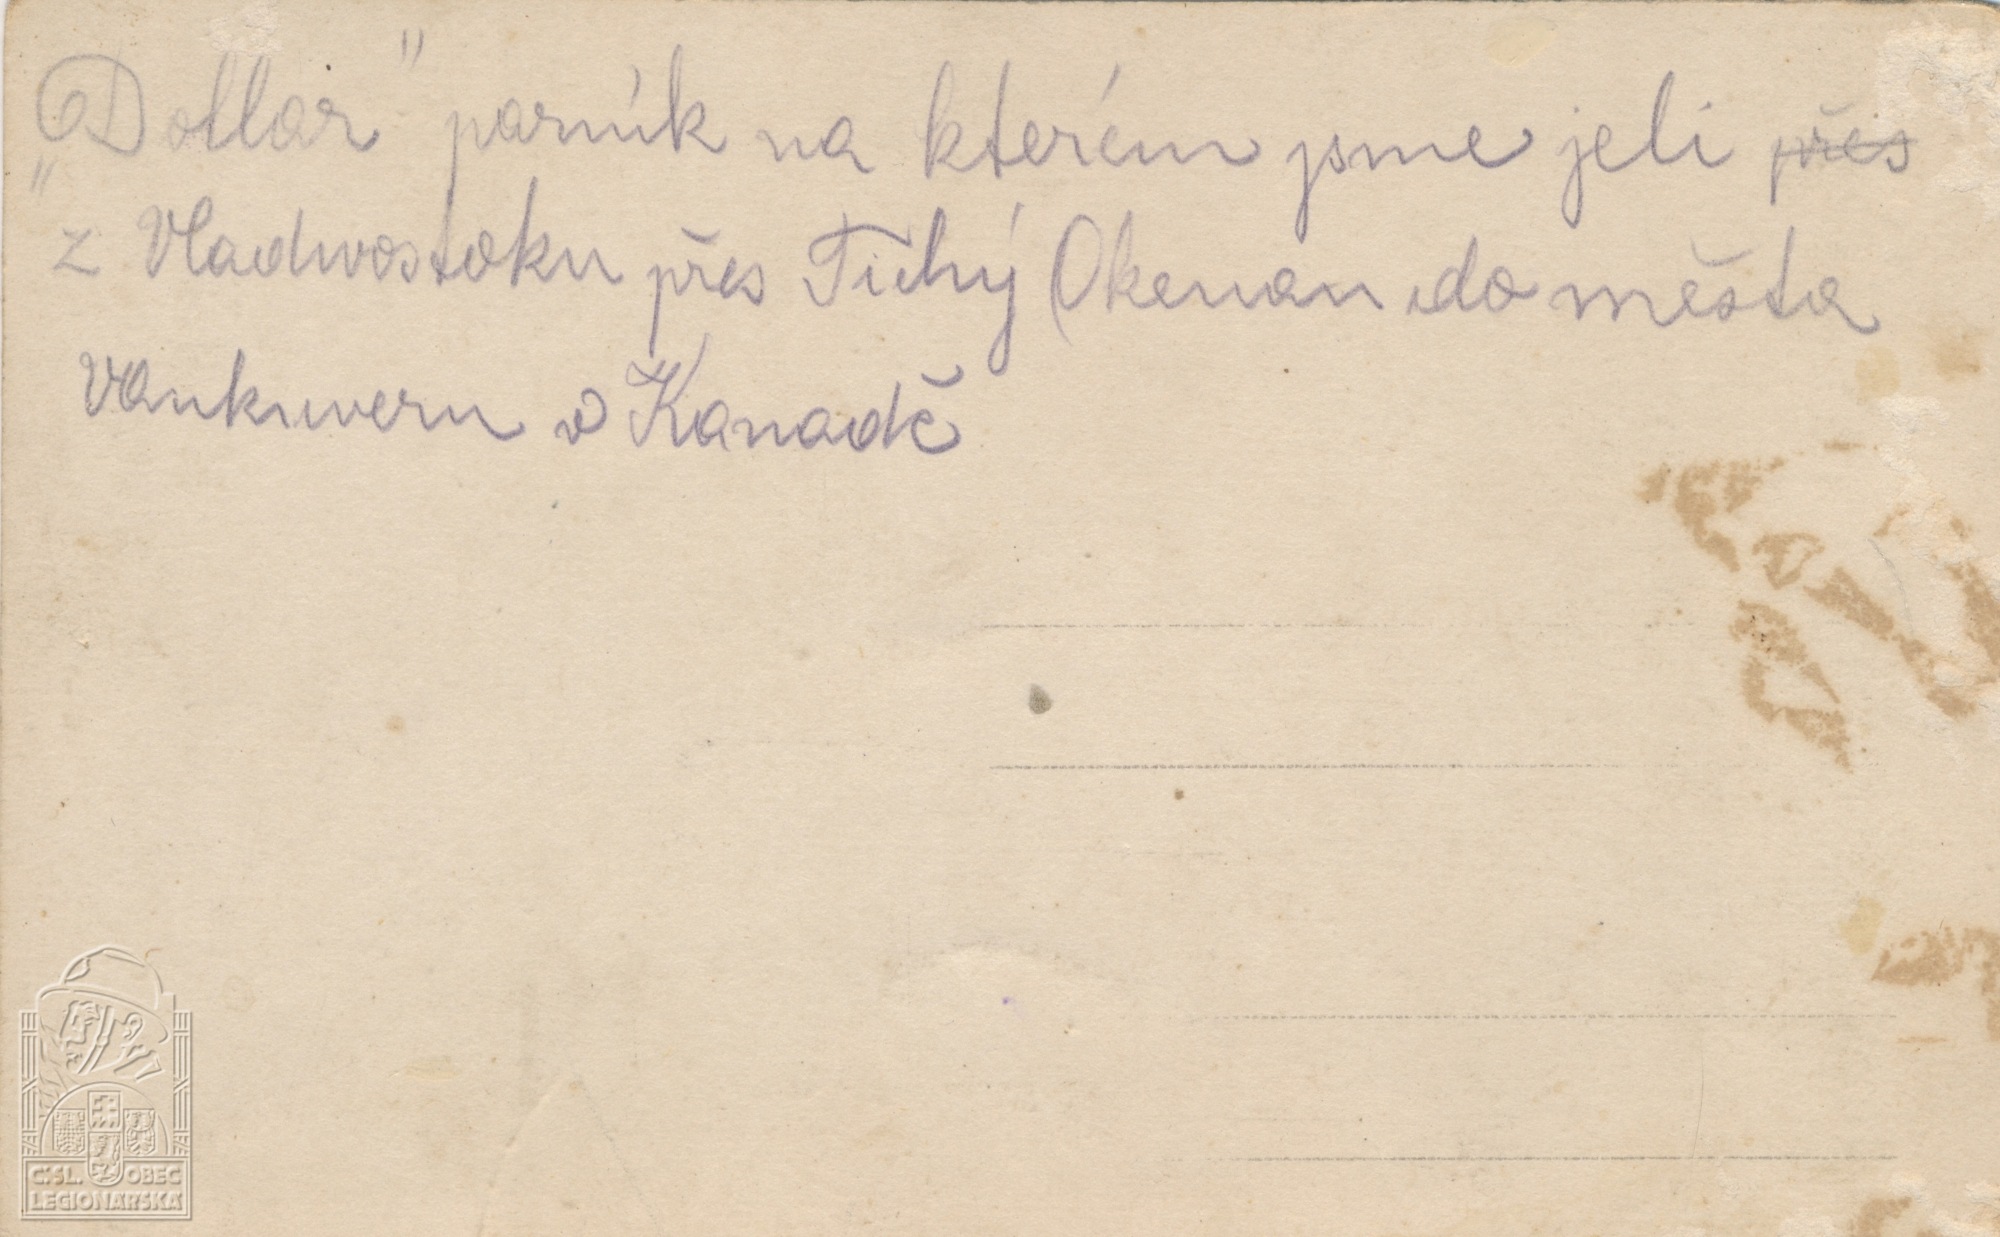 „Dollar" parník na kterém jsme jeli ~~přes~~
z Vladivostoku přes Tichý Okenan do města
Vankuveru v Kanadě
Č.SL. OBEC
LEGIONÁŘSKÁ